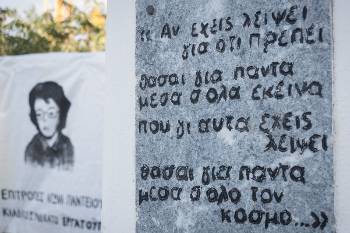 « Αν εχεις λειψει
για ότι πρεπει
θασαι για παντα
μεσα σ όλα εκεινα
που γι αυτα εχεις
λειψει
θασαι για παντα
μεσα σ όλο τον
κοσμο...»
ΕΠΙΤΡΟΠΕΣ
ΠΑΝΤΕΙΟΥ